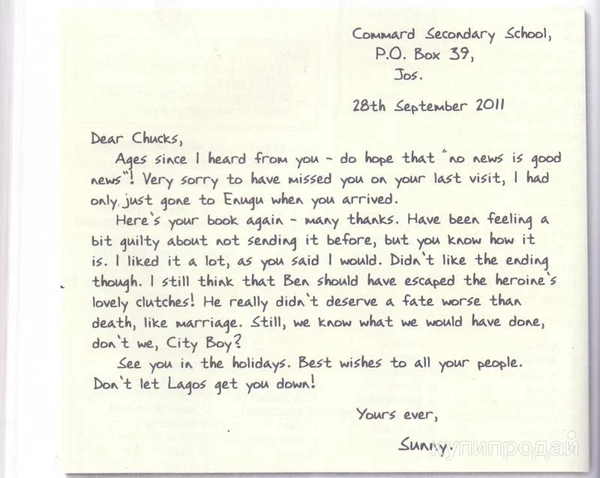 Commard Secondary School,
P.O. Box 39,
Jos.
28th September 2011
Dear Chucks,
Ages since I heard from you - do hope that "no news is good
news"! Very sorry to have missed you on your last visit, I had
only just gone to Enugu when you arrived.
Here's your book again - many thanks. Have been feeling a
bit guilty about not sending it before, but you know how it
is. I liked it a lot, as you said I would. Didn't like the ending
though. I still think that Ben should have escaped the heroine's
lovely clutches! He really didn't deserve a fate worse than
death, like marriage. Still, we know what we would have done,
don't we, City Boy?
See you in the holidays. Best wishes to all your people.
Don't let Lagos get you down!
Yours ever,
Sunny.
купипродай